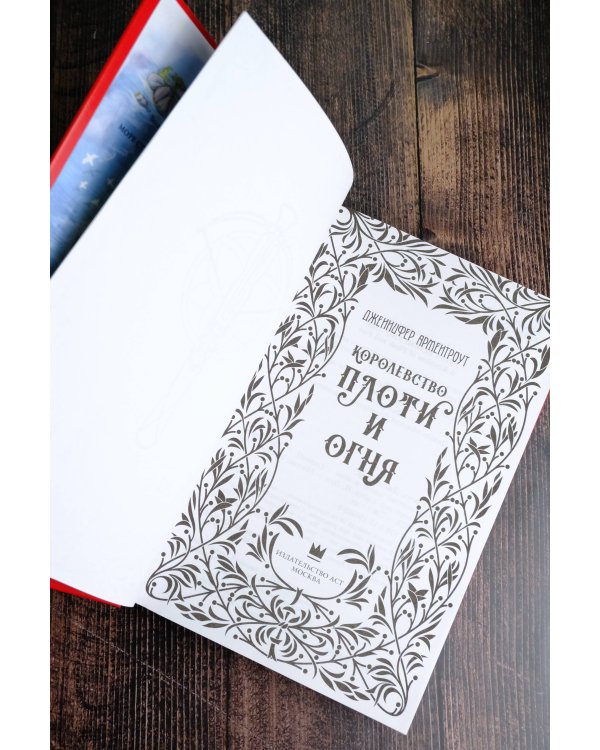 МОРЕ
ДЖЕННИФЕР АРМЕНТРОУТ
КОРОЛЕВСТВО
ПЛОТИ
И
ОГНЯ
ИЗДАТЕЛЬСТВО АСТ
МОСКВА